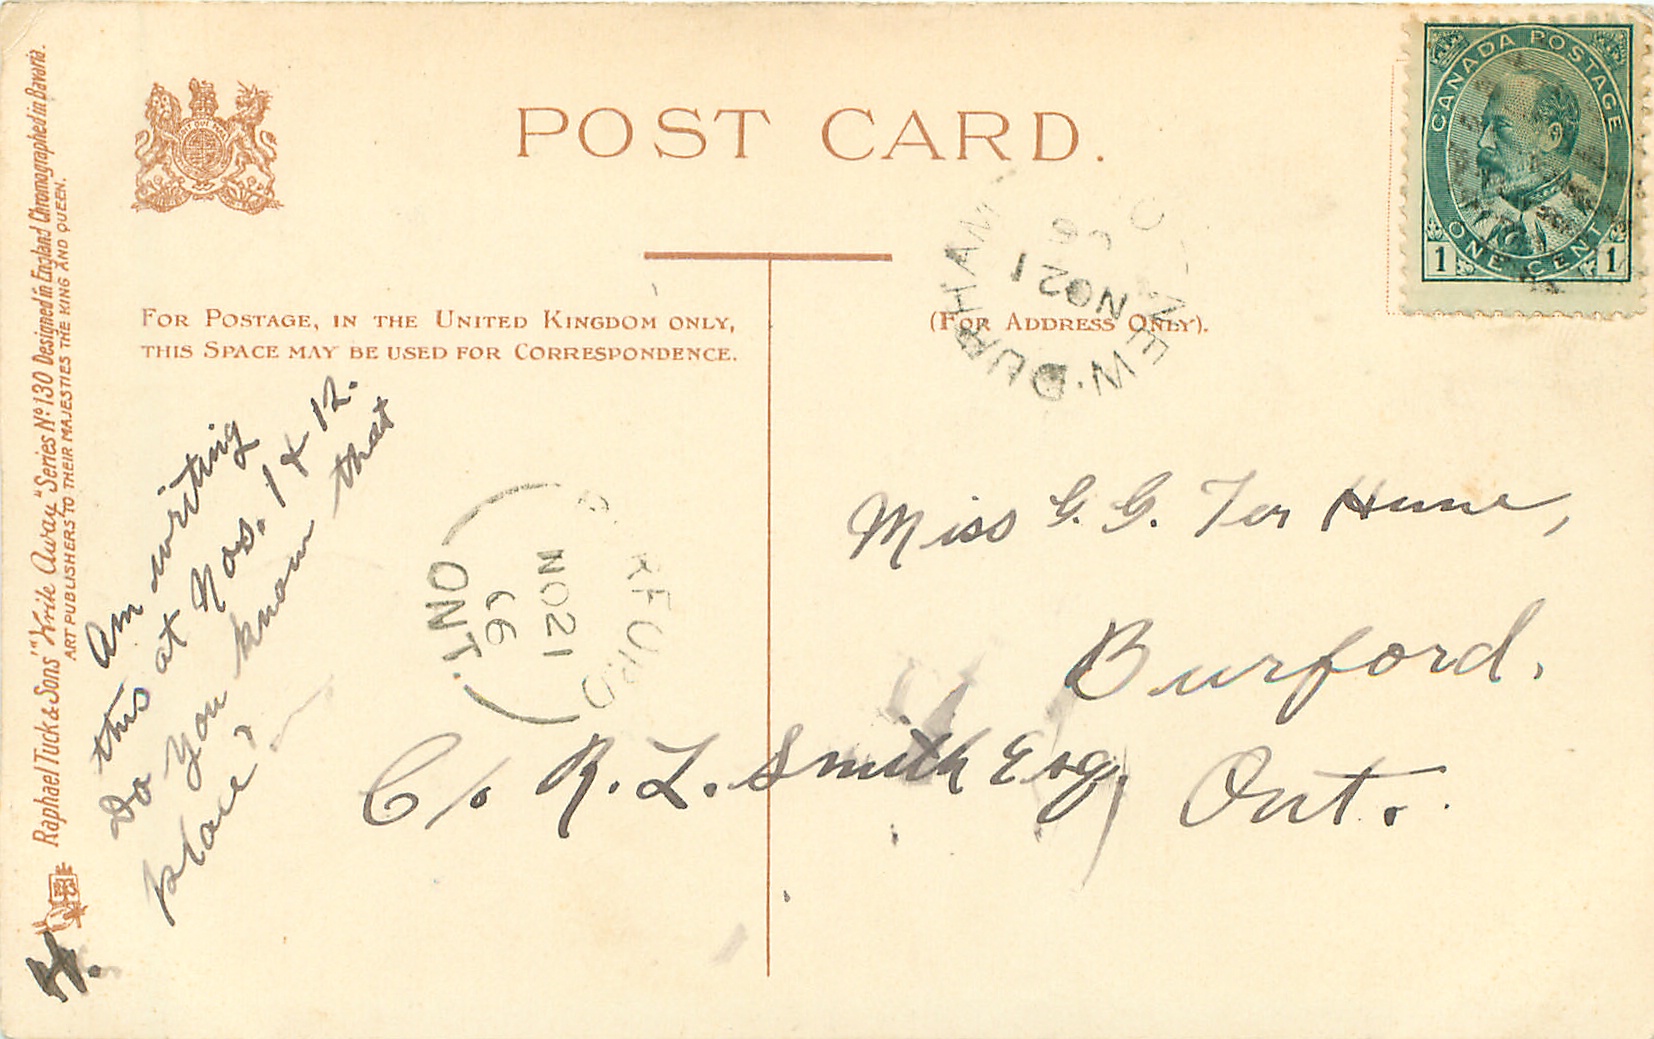 POST CARD.
FOR POSTAGE, IN THE UNITED KINGDOM ONLY,
THIS SPACE MAY BE USED FOR CORRESPONDENCE.
(FOR ADDRESS ONLY).
CANADA POSTAGE
1 ONE CENT 1
NEW·DURHAM O
NO 21
06
ONT.
NO 21
06
Raphael Tuck & Sons' "Write Away" Series Nº 130 Designed in England Chromographed in Bavaria.
ART PUBLISHERS TO THEIR MAJESTIES THE KING AND QUEEN.
Am writing
this at Nos. 1 & 12.
Do you know that
place?
H.
Miss G. G. Ter Hune,
Burford.
C/o R. L. Smith Esq, Ont.